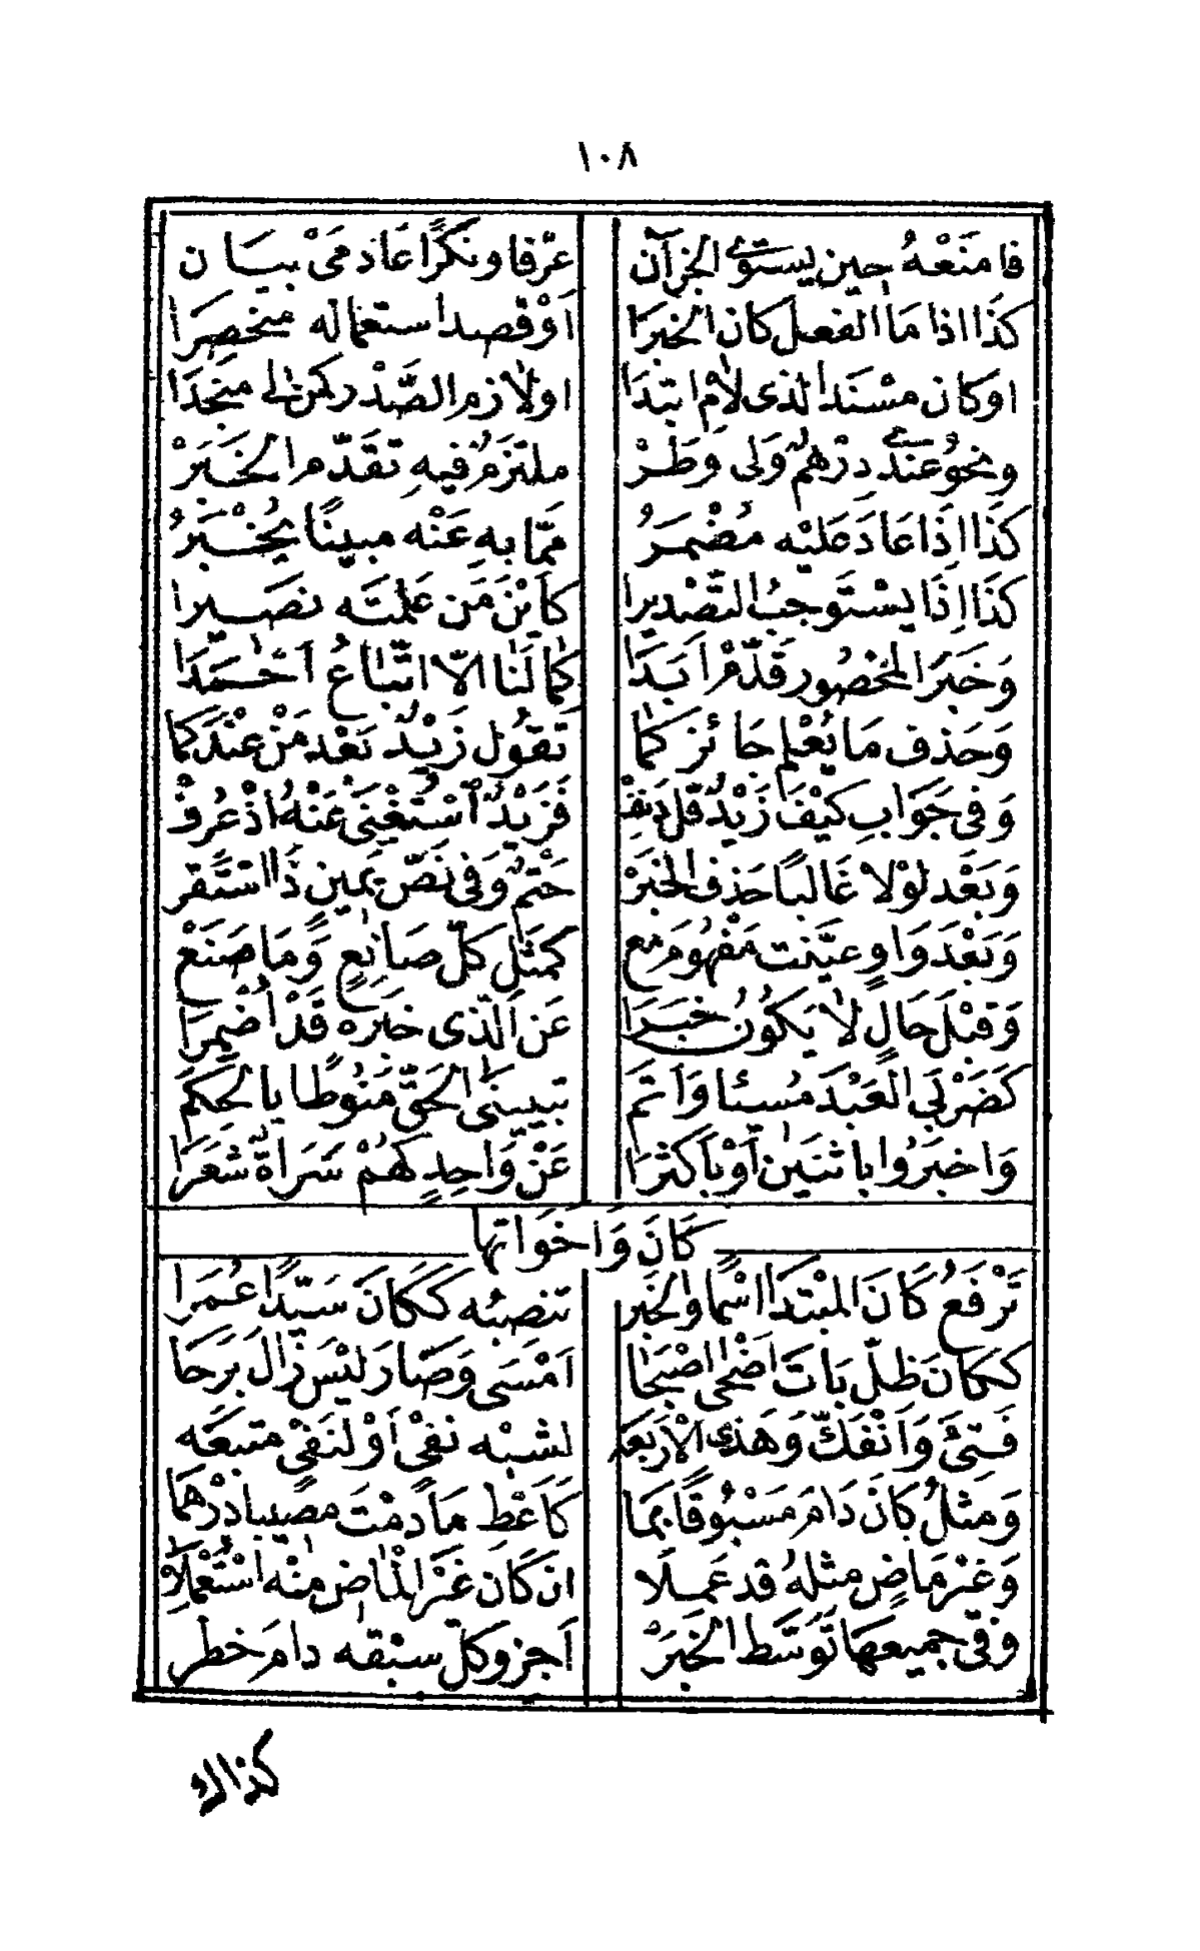 ١٠٨
فامنَعْهُ حين يستوى الجزآن عرّفا ونكرًا عَادمَىْ بيَان
كذَا اذا مَا الفعلَ كان الخبَرَا اَوْ قصِد استعماله منحصِرَا
او كان مسْنَدا لذى لاٰمْ ابتدَا اولاٰزم الصّدْر كمن لى منجدَا
ونحوُ عندى درْهمٌ وَلى وَطرْ ملتزَمٌ فيهِ تقَدّم الخَبَرْ
كَذَا اذَا عَادَ عَليْه مُضْمَرُ ممّا بهِ عَنْه مبينًا يُخْبَرُ
كَذَا اِذَا يسْتَوجبُ التّصْديرا كاَيْنَ مَن عَلمتَه نصَيرا
وَخَبَرَ المحْصُور قدّمْ اَبَدَا كمَا لَنَا الاّ اتّبَاعُ اَحْمَدَا
وَحَذف مَا يُعْلم جَائز كمَا تقوُل زَيْدٌ بَعْد مَنْ عنْدَ كمَا
وَفى جَوَابِ كيْفَ زَيْدٌ قل دَنفْ فَزَيْدٌ اسْتُغْنىَ عَنْهُ اذْ عُرفْ
وَبَعْد لوْلا غَالبًا حَذف الخبَرْ حَتمٌ وَفى نَصّ يَمين ذَا اسْتَقر
وَبَعْدَ وَاوٍ عيّنت مَفْهوُم مَع كمثل كلّ صَانعٍ وَمَا صَنَعْ
وَقبْلَ حَالٍ لاٰ يَكوُنُ خبَرَا عَن اَلّذى خبَره قَدْ اُضْمِرَا
كَضَرْبىَ العَبْدَ مُسئا وَاَتمّ تبيينىَ الحَقّ مَنوُطًا بالحِكَمْ
وَاخبَرُوا باثنَين اَوْ باَكثرَا عَنْ وَاحِدٍ كهمْ سَرَاةٌ شُعَرَا
كَانَ وَاَخوَاتهَا
تَرْفَعُ كَانَ المبْتَدَا اسْمًا والخَبر تنصبُه ككَانَ سَيّدًا عُمَرَا
ككَانَ ظلّ بَاتَ اَضْحٰى اصْبَحَا اَمْسَى وَصَارَ ليْسَ زَالَ بَرَحَا
فَتئَ وَانْفَكّ وَهَذى الاَرْبَعَه لشبْه نفْىٍ اَوْ لنَفْىٍ متبَعَه
وَمثلُ كانَ دَامَ مَسْبُوقًا بمَا كَاَعْطِ مَا دمْتَ مصيبا درْهمَا
وَغيْر مَاضٍ مثلهُ قد عَملَا ان كَان غَيْر الماٰض منْه اسْتُعْملَا
وفى جميعهَا توَسّط الخَبَرْ اَجز وكلّ سبْقَه دامَ خطر
كذاك